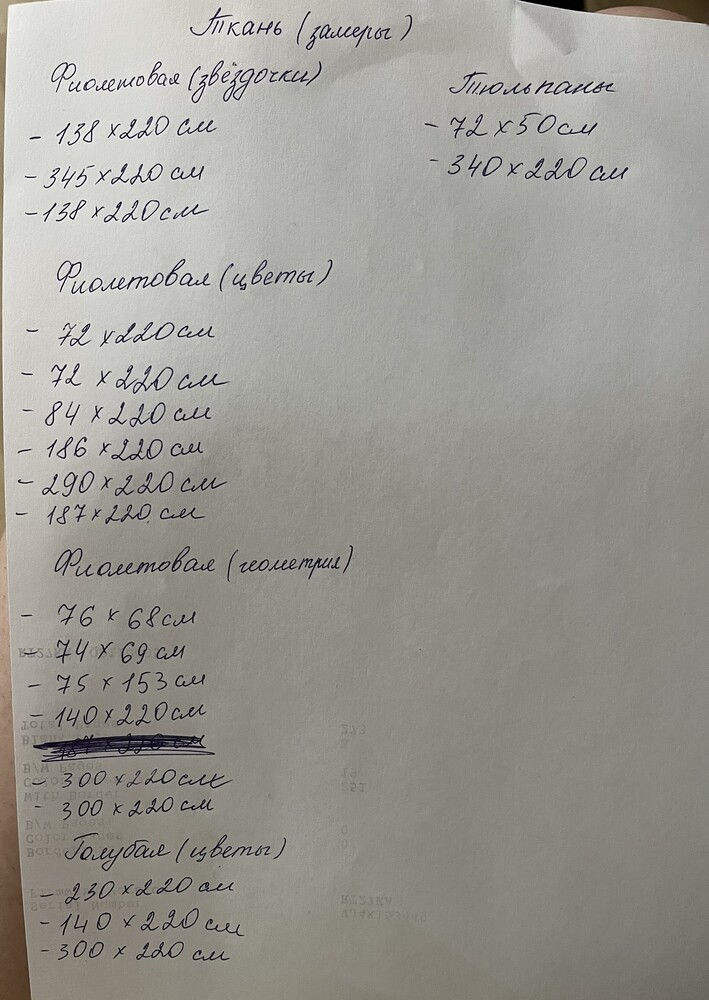 Ткань (замеры)
Фиолетовая (звёздочки)
- 138 х 220 см
- 345 х 220 см
- 138 х 220 см
Тюльпаны
- 72 х 50 см
- 340 х 220 см
Фиолетовая (цветы)
- 72 х 220 см
- 72 х 220 см
- 84 х 220 см
- 186 х 220 см
- 290 х 220 см
- 187 х 220 см
Фиолетовая (геометрия)
- 76 х 68 см
- 74 х 69 см
- 75 х 153 см
- 140 х 220 см
- 300 х 220 см
- 300 х 220 см
Голубая (цветы)
- 230 х 220 см
- 140 х 220 см
- 300 х 220 см